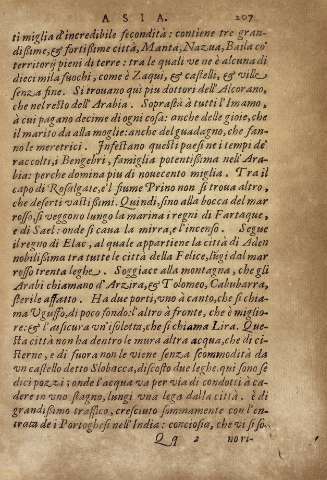 ASIA. 207
ti miglia d'incredibile fecondità: contiene tre gran-
dissime, & fortissime città, Manta, Nazua, Baila cō
territorij pieni di terre: tra le quali ve ne è alcuna di
dieci mila fuochi, come è Zaqui, & castelli, & ville
senza fine. Si trouano qui piu dottori dell'Alcorano,
che nel resto dell'Arabia. Soprastà à tutti l'Imamo,
à cui pagano decime di ogni cosa: anche delle gioie, che
il marito da alla moglie: anche del guadagno, che fan-
no le meretrici. Infestano questi paesi ne i tempi de'
raccolti, i Bengebri, famiglia potentissima nell'Ara-
bia: perche domina piu di nouecento miglia. Tra il
capo di Rosalgate, e'l fiume Prino non si troua altro,
che deserti vastissimi. Quindi, sino alla bocca del mar
rosso, si veggono lungo la marina i regni di Fartaque,
e di Sael: onde si caua la mirra, e l'incenso. Segue
il regno di Elac, al quale appartiene la città di Aden
nobilissima tra tutte le città della Felice, lūgi dal mar
rosso trenta leghe. Soggiace alla montagna, che gli
Arabi chiamano d'Arzira, & Tolomeo, Cabubarra,
sterile affatto. Ha due porti, vno à canto, che si chia-
ma Vguffo, di poco fondo: l'altro à fronte, che è miglio-
re: & l'assicura vn'isoletta, che si chiama Lira. Que-
sta città non ha dentro le mura altra acqua, che di ci-
sterne, e di fuora non le viene senza scommodità da
vn castello detto Slobacca, discosto due leghe. qui sono se
dici pozzi; onde l'acqua va per via di condotti à ca-
dere in vno stagno, lungi vna lega dalla città. è di
grandissimo traffico, cresciuto sommamente con l'en-
trata de i Portoghesi nell'India: conciosia, che vi si so-
Qq 2 nori-